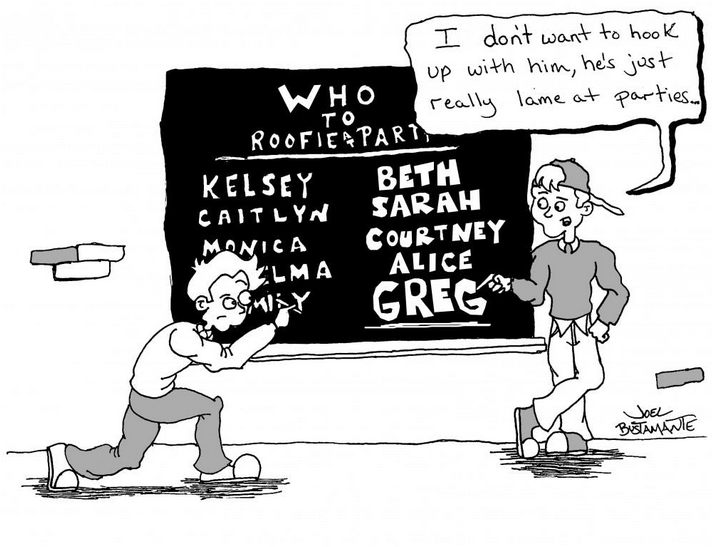 I don't want to hook
up with him, he's just
really lame at parties...
WHO
TO
ROOFIE AT PART
KELSEY
CAITLYN
MONICA
ELMA
MILY
BETH
SARAH
COURTNEY
ALICE
GREG
JOEL
BUSTAMANTE